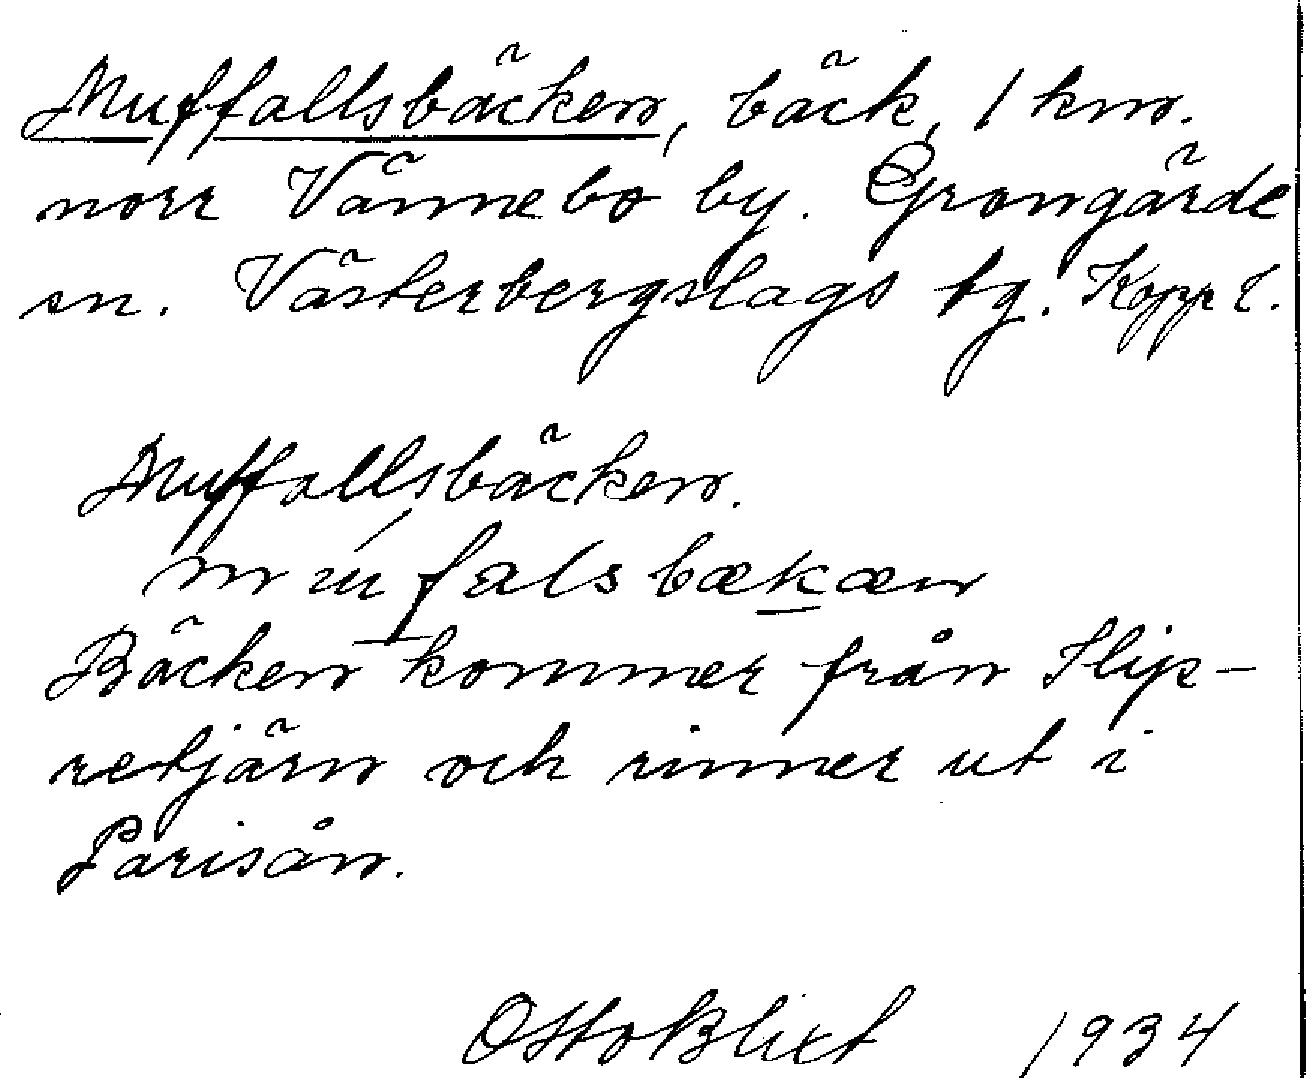 Muffallsbäcken, bäck, 1 km.
norr Vännebo by. Grangärde
sn. Västerbergslags tg. Kopp l.
Muffallsbäcken.
Bäcken kommer från Slip-
retjärn och rinner ut i
Parisån.
Otto Blixt 1934